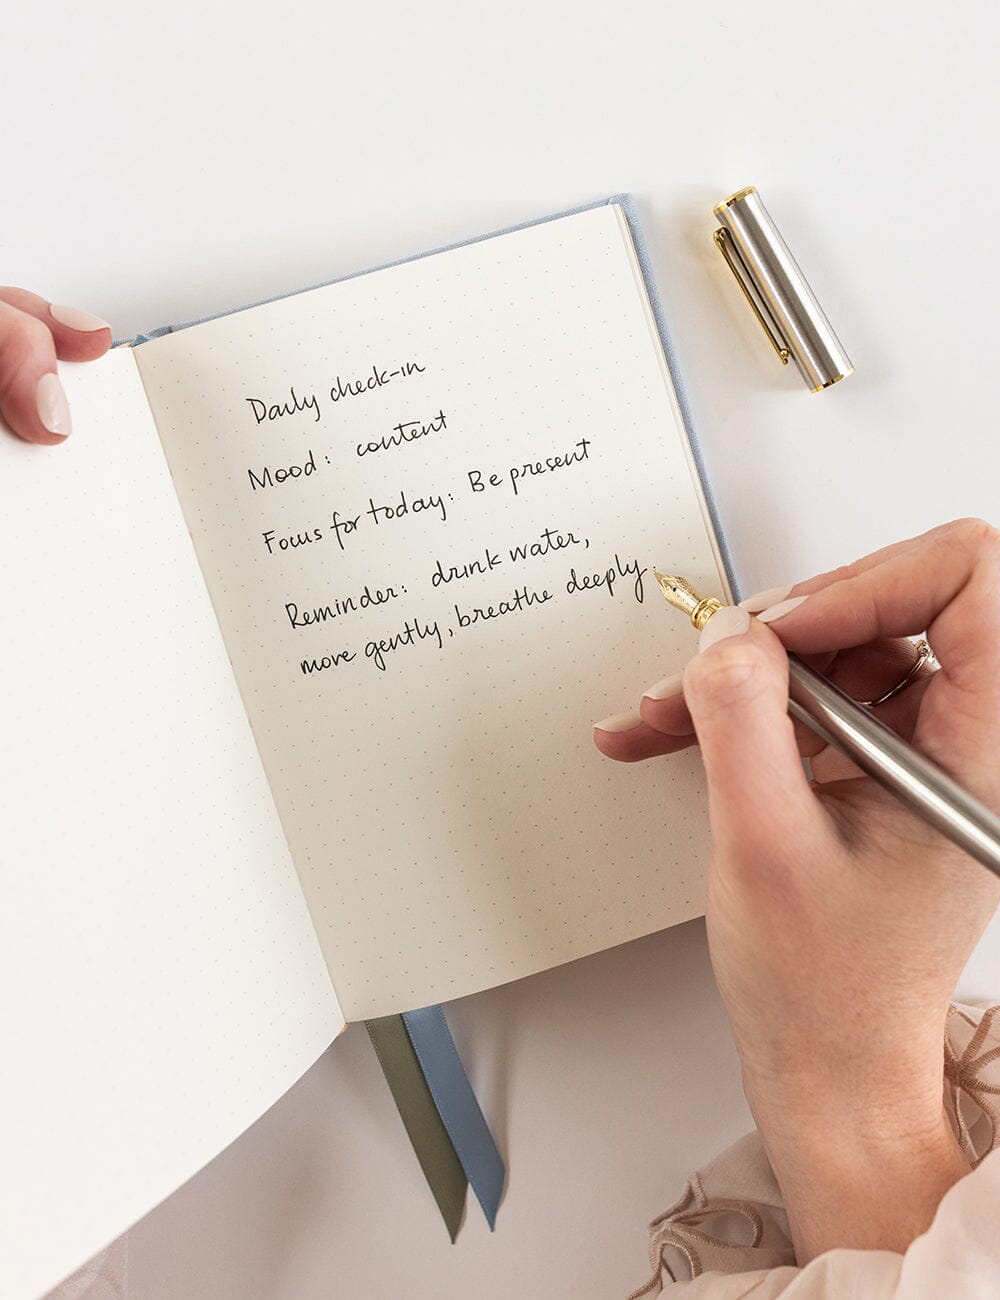 Daily check-in
Mood: content
Focus for today: Be present
Reminder: drink water,
move gently, breathe deeply.